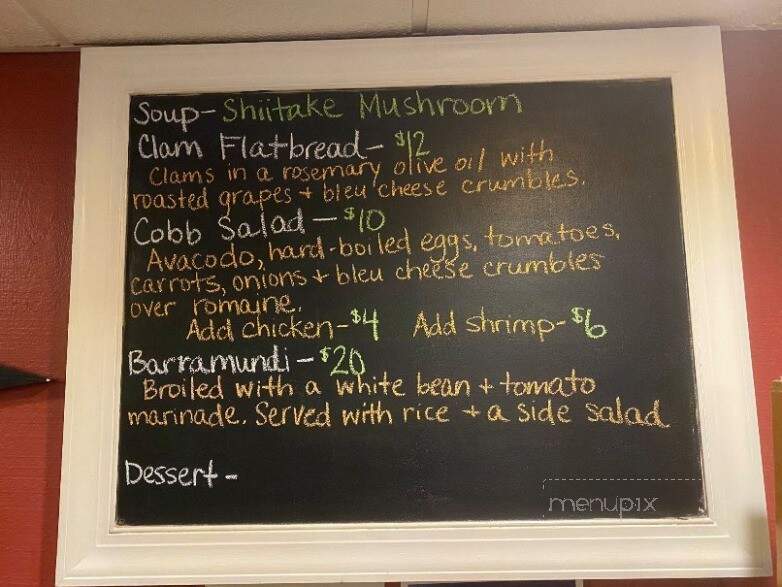 Soup- Shiitake Mushroom
Clam Flatbread- $12
Clams in a rosemary olive oil with
roasted grapes + bleu cheese crumbles.
Cobb Salad - $10
Avacodo, hard-boiled eggs, tomatoes,
carrots, onions + bleu cheese crumbles
over romaine.
Add chicken- $4 Add shrimp- $6
Barramundi - $20
Broiled with a white bean + tomato
marinade. Served with rice + a side salad
Dessert -
menupix